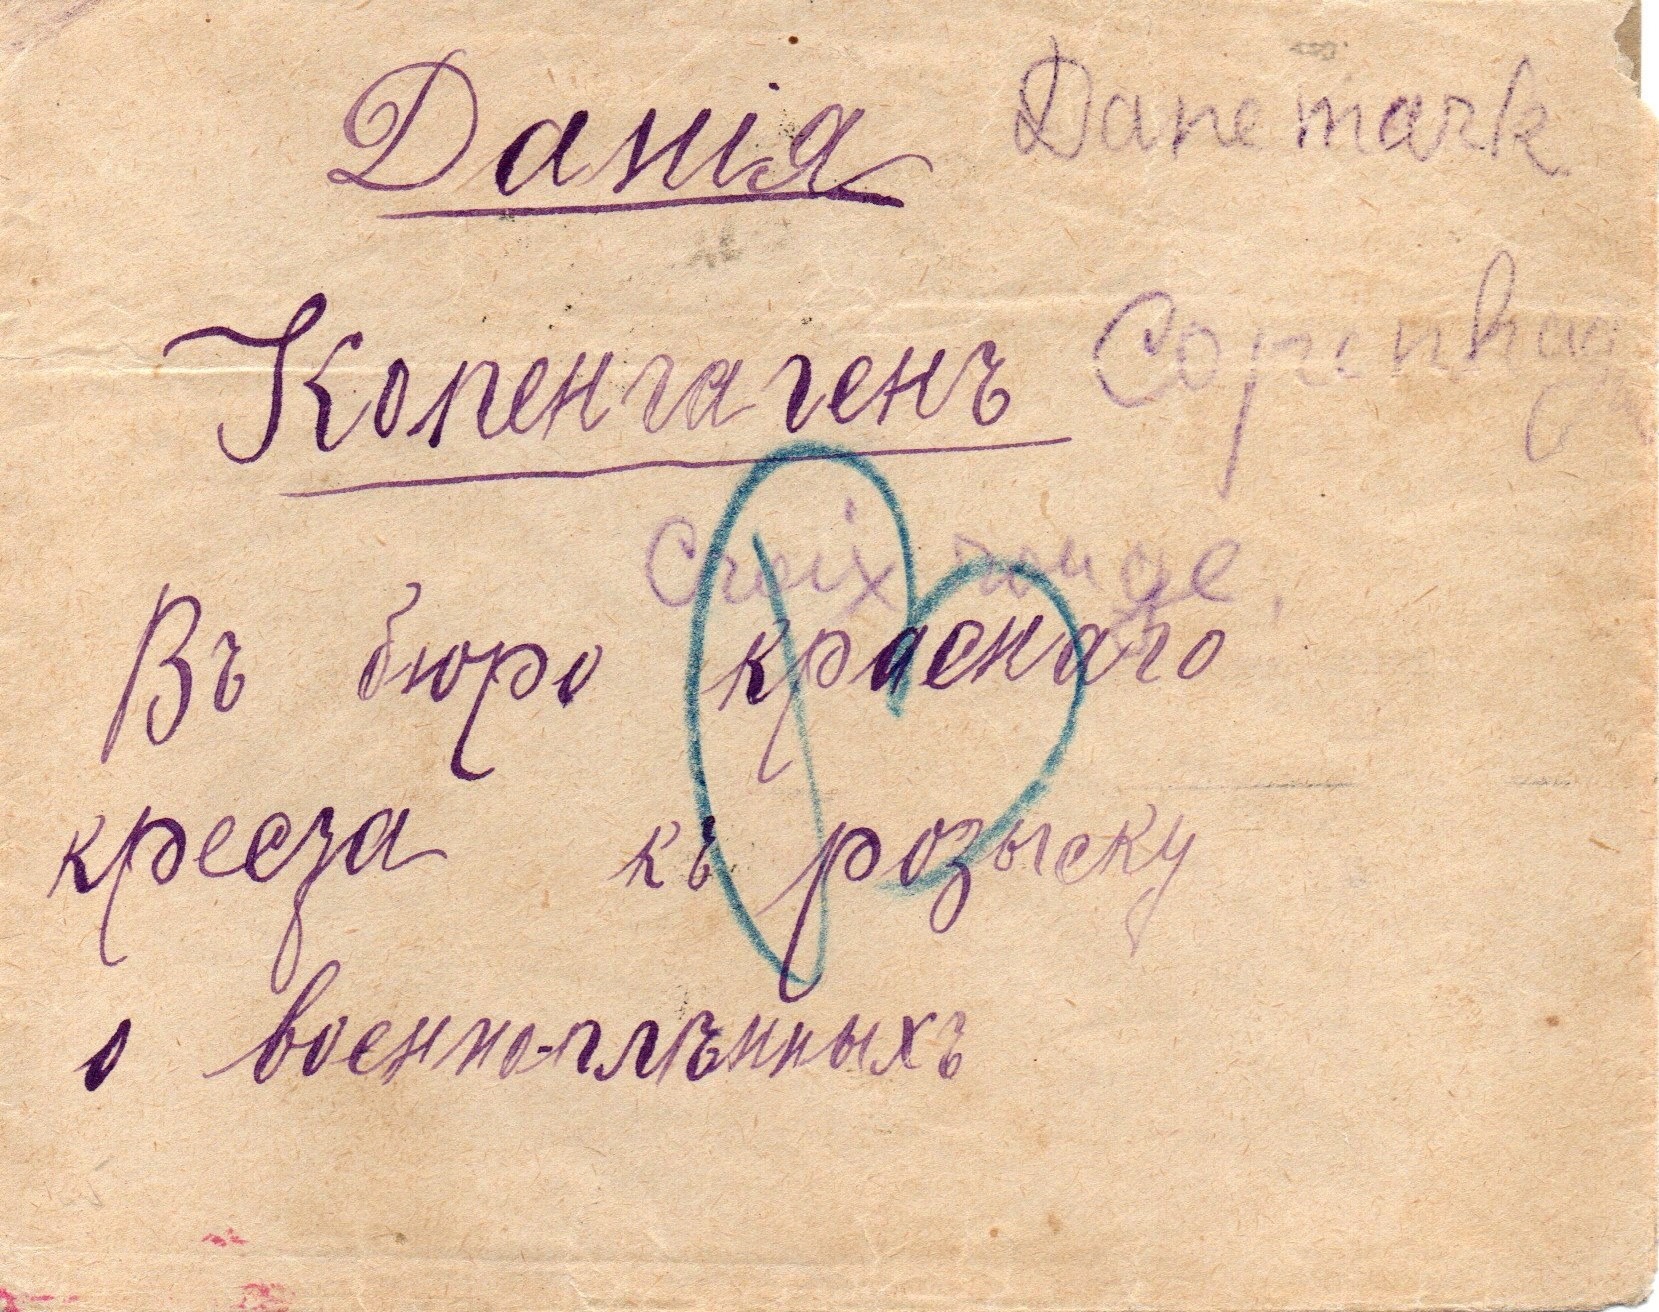 Данія Danemark
Копенгагенъ Copenhag
Croix rouge,
Въ бюро краснаго
кресза къ розыску
о военно-плѣнныхъ